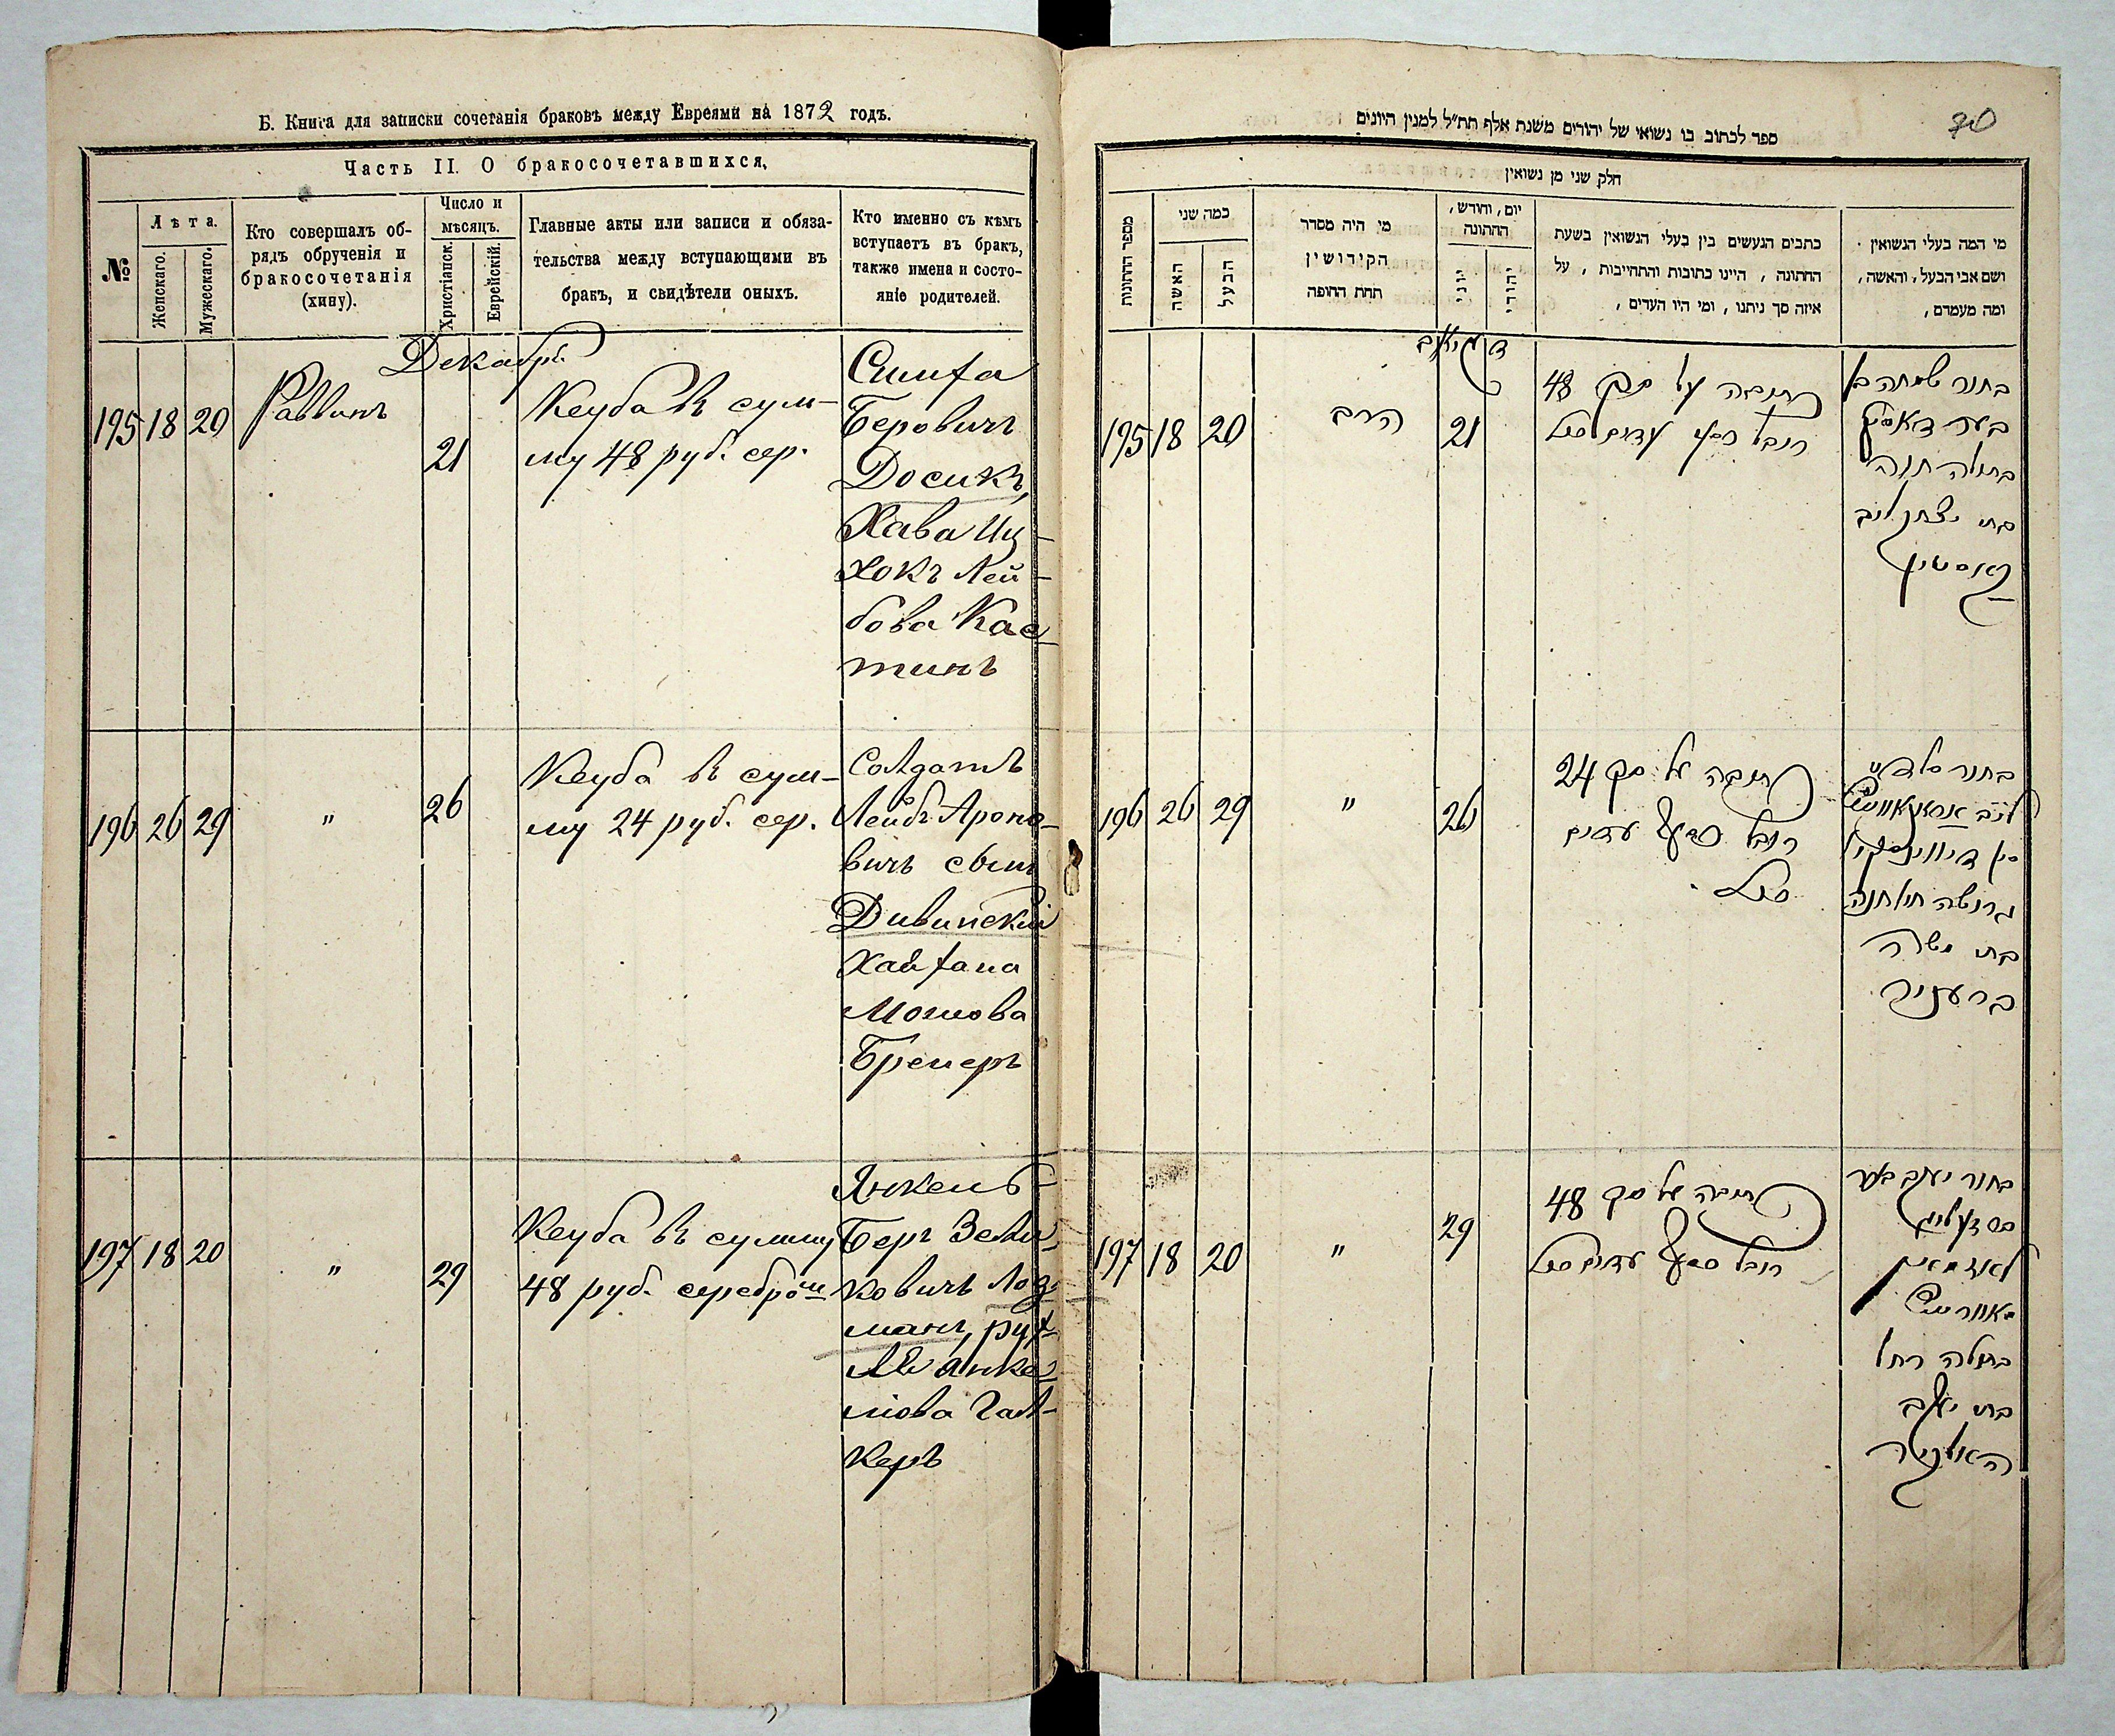 Б. Книга для записки сочетанія браковъ между Евреями на 1872 годъ.
Часть II. О бракосочетавшихся,
№
Лѣта.
Женскаго.
Мужескаго.
Кто совершалъ об-
рядъ обрученія и
бракосочетанія
(хину).
Число и
мѣсяцъ.
Христіанск.
Еврейскій.
Главные акты или записи и обяза-
тельства между вступающими въ
бракъ, и свидѣтели оныхъ.
Кто именно съ кѣмъ
вступаетъ въ бракъ,
также имена и состо-
яніе родителей.
Декабрь
195 18 20 Раввинъ 21
Кеуба въ сум-
му 48 руб. сер.
Симха
Беровичъ
Досикъ,
Хава Иц-
хокъ Лей-
бова Кас-
тинъ
196 26 29 " 26
Кеуба въ сум-
му 24 руб. сер.
Солдатъ
Лейбъ Ароно-
вичъ сынъ
Дивинскій
Хайхана
Мошова
Бремеръ
197 18 20 " 29
Кеуба въ сумму
48 руб. серебромъ
Янкель-
Беръ Зели-
ковичъ Лоз-
манъ, рух-
ля Янке-
ліова Гал-
керъ
70
ספר לכתוב בו נשואי של יהודים משנת אלף תת״ל למנין היונים
חלק שני מן נשואין
מספר החתונות
כמה שני
האשה
הבעל
מי היה מסדר
הקידושין
תחת החופה
יום, וחודש,
החתונה
יוני
יהודי
כתבים הנעשים בין בעלי הנשואין בשעת
החתונה, היינו כתובות והתחייבות, על
איזה סך ניתנו, ומי היו העדים,
מי המה בעלי הנשואין
ושם אבי הבעל, והאשה,
ומה מעמדם,
195 18 20 הרב 21
כתובה על סך 48
רובל כסף עדים
בחור שמחה בן
בער דאסיק
בתולה חוה
בת יצחק ליב
קאסטין
196 26 29 " 26
כתובה על סך 24
רובל כסף עדים
בחור סלדט
ליב
דיווינסקי
גרושה חי חנה
בת משה
197 18 20 " 29
כתובה על סך 48
רובל כסף עדים
בחור יעקב בער
בתולה רחל
בת יעקב